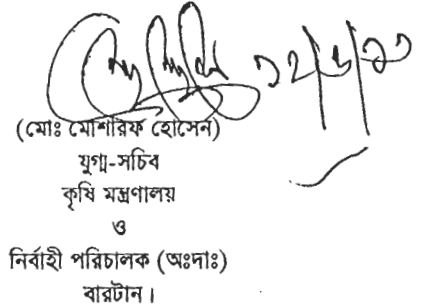 (মোঃ মোশারফ হোসেন)
যুগ্ম-সচিব
কৃষি মন্ত্রণালয়
ও
নির্বাহী পরিচালক (অঃদাঃ)
বারটান।